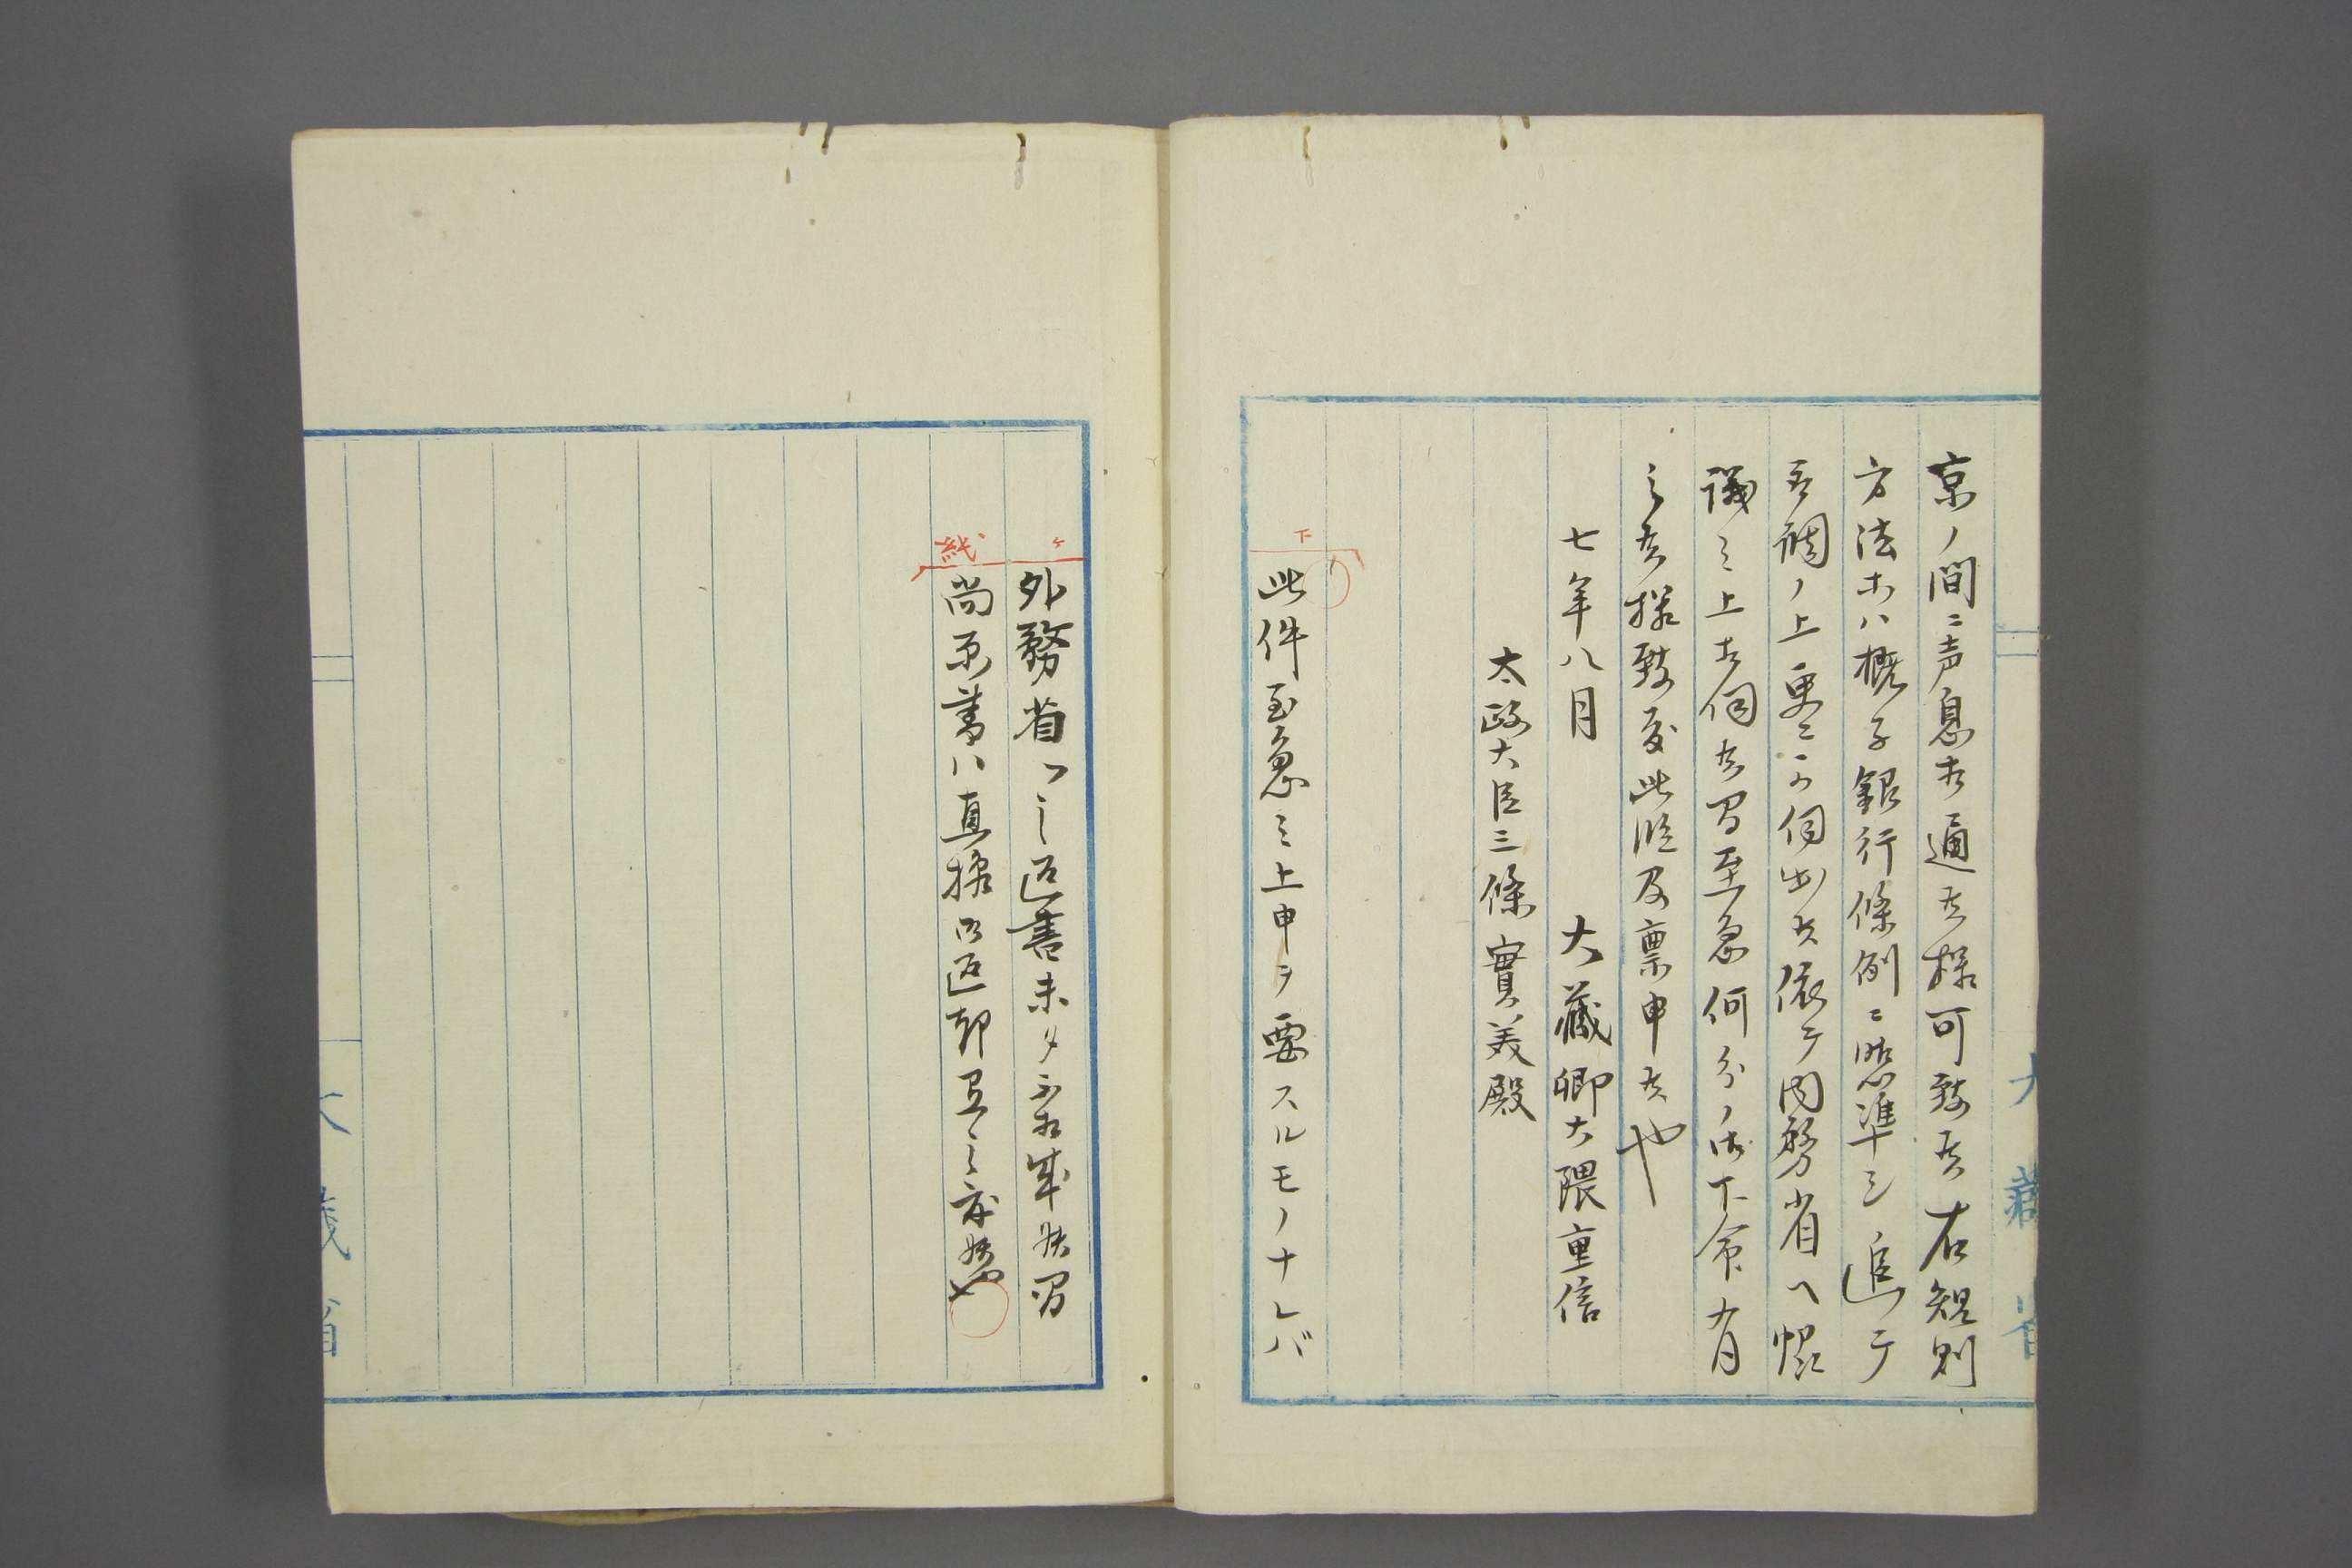 京ノ間ニ声息相通候様可致候右規則
方法等ハ概子銀行條例ニ照準シ追テ
取調ノ上更ニ可伺出候依テ内務省ヘ協
議之上相伺候間至急何分ノ御下命有
之候様致度此段及稟申候也
七年八月 大藏卿大隈重信
太政大臣三條實美殿
此件至急之上申ヲ要スルモノナレバ
外務省ヘ之返書未タ不相成候間
尚原書ハ直様御返却有之度候也
大藏省
大藏省